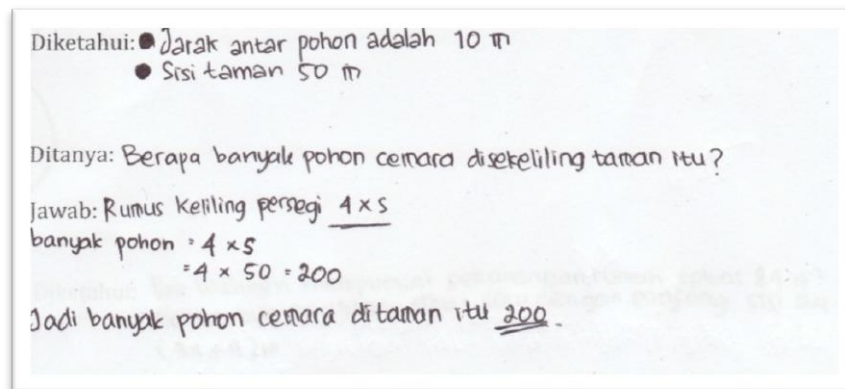 Diketahui: ● Jarak antar pohon adalah 10 m
● Sisi taman 50 m
Ditanya: Berapa banyak pohon cemara disekeliling taman itu?
Jawab: Rumus Keliling persegi 4 × s
banyak pohon = 4 × s
= 4 × 50 = 200
Jadi banyak pohon cemara ditaman itu 200.